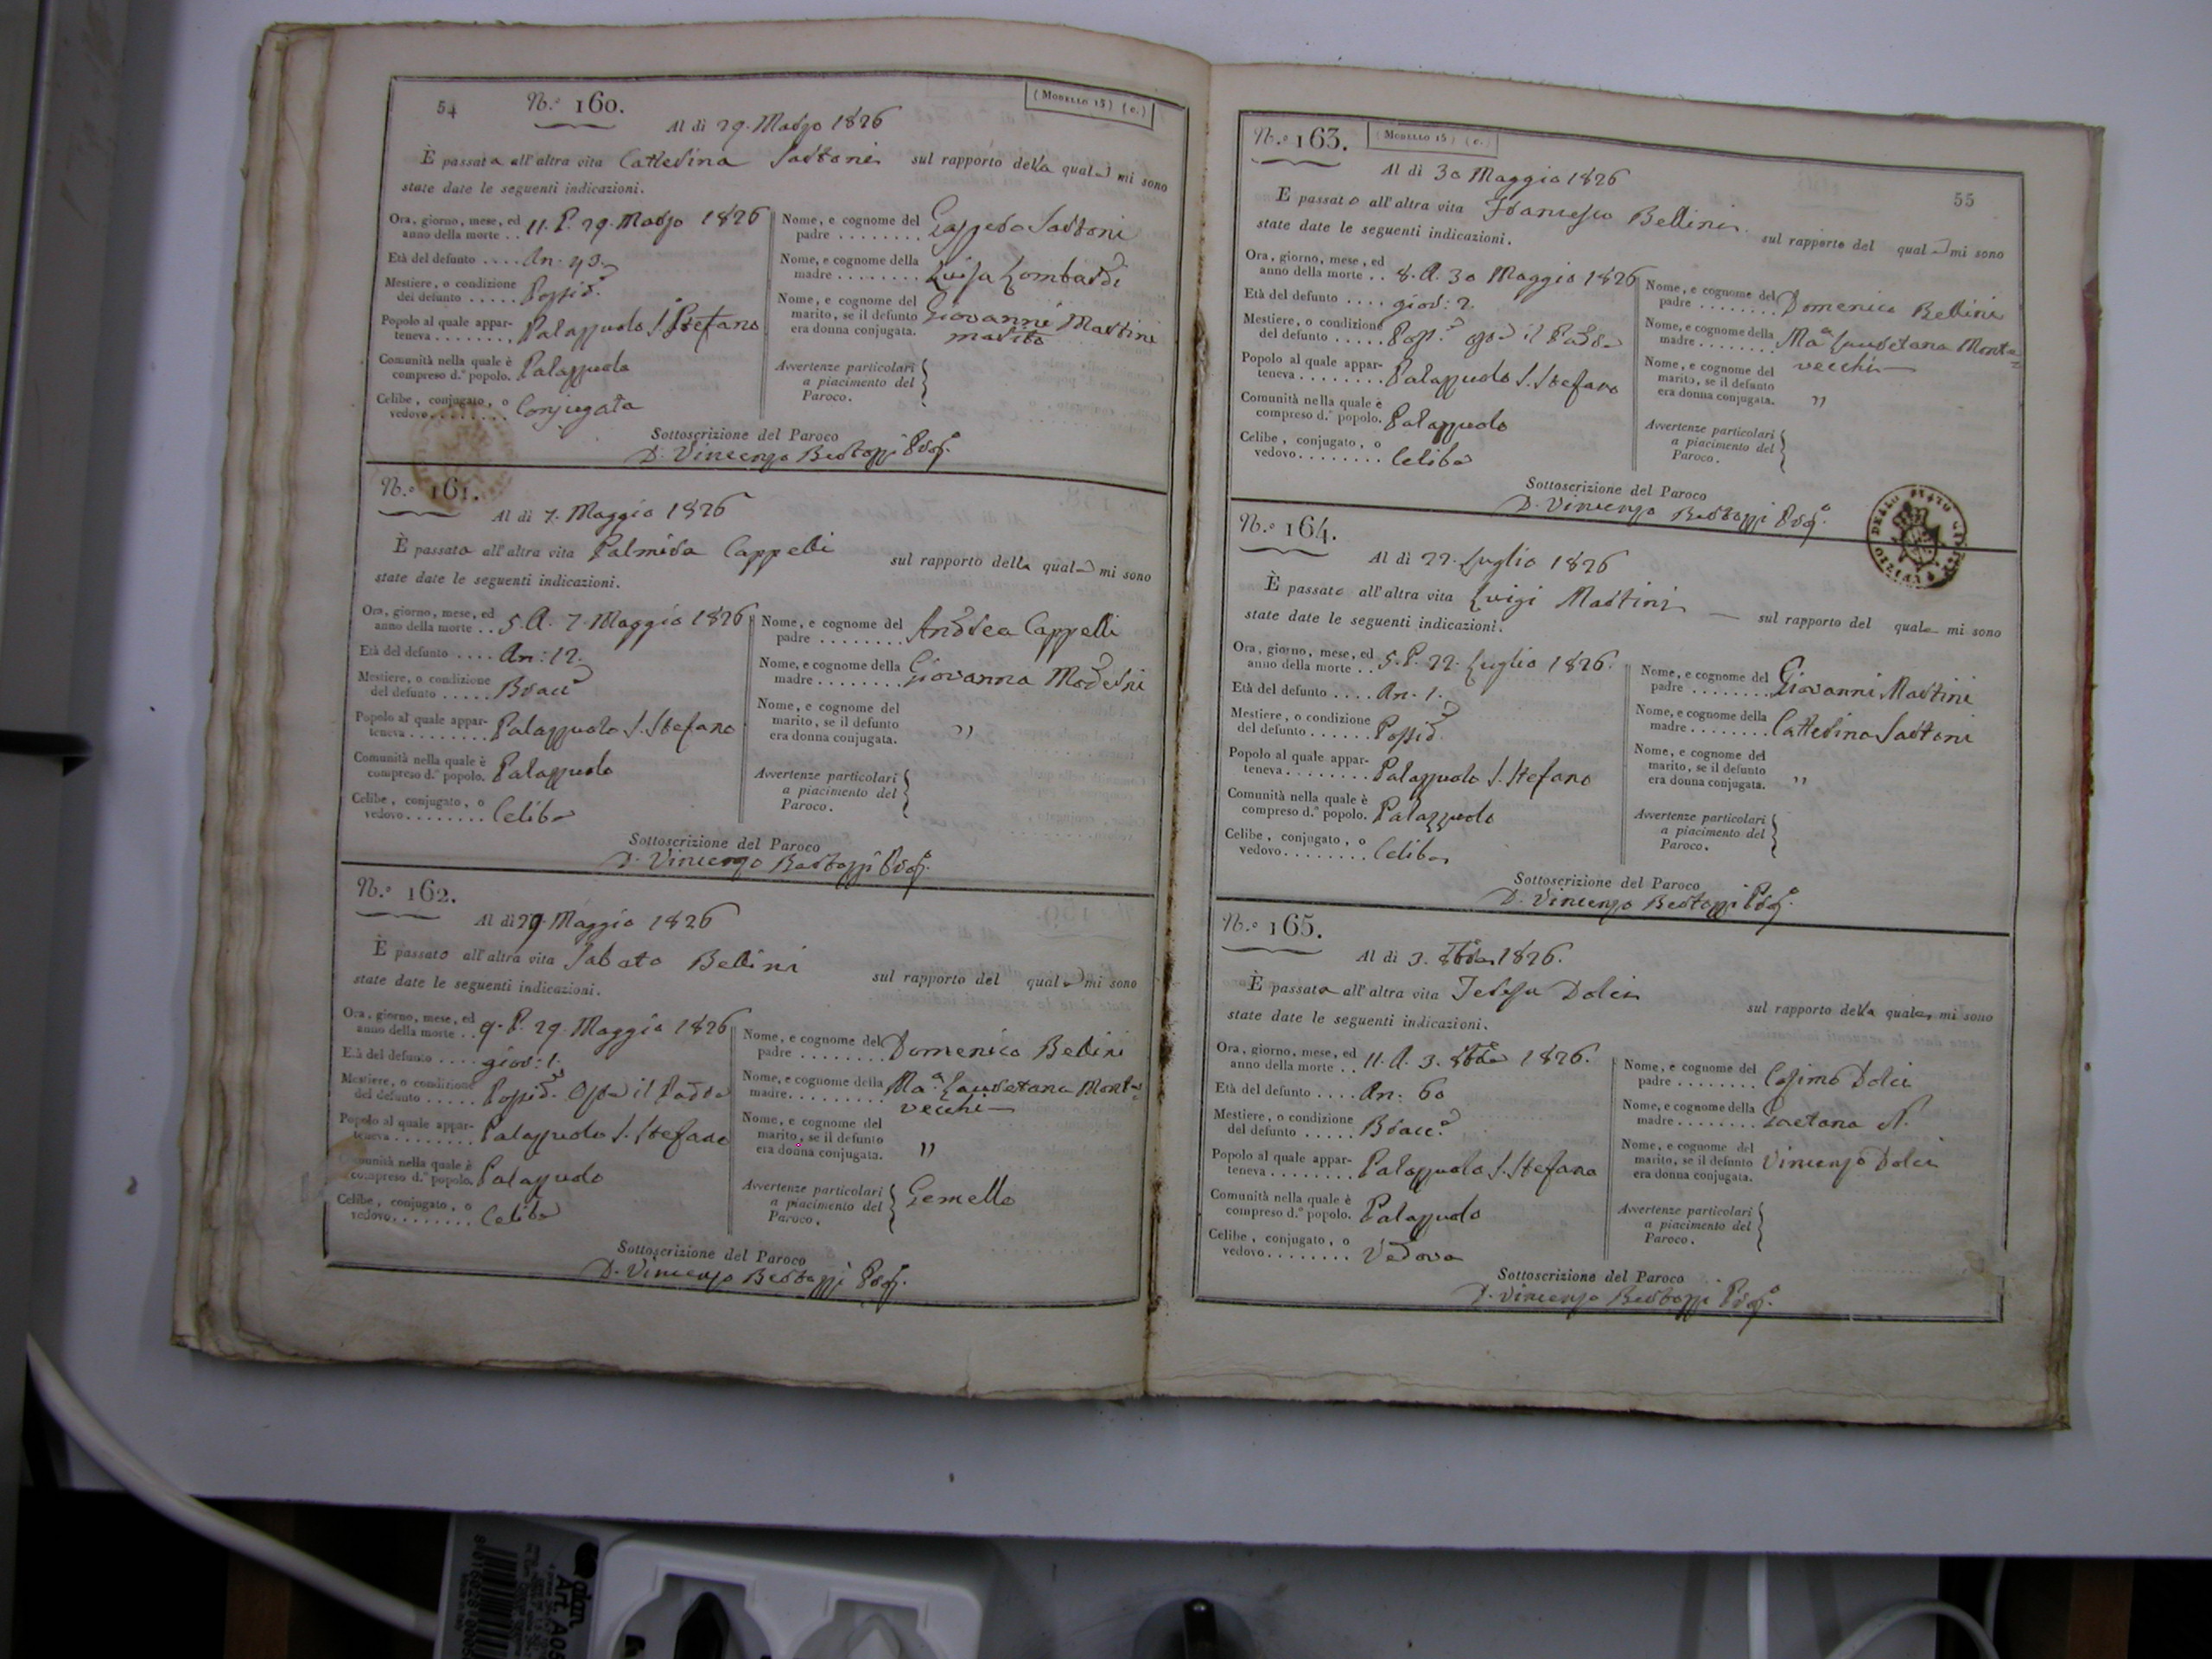 54 N.º 160. (Modello 15) (c.)
Al dì 29. Marzo 1826
È passata all'altra vita Catterina Sartoni sul rapporto della quale mi sono
state date le seguenti indicazioni.
Ora, giorno, mese, ed
anno della morte .. 11. P. 29. Marzo 1826
Età del defunto .... An. 43.
Mestiere, o condizione
del defunto ..... Possid.
Popolo al quale appar-
teneva ........, Palazzuolo S. Stefano
Comunità nella quale è
compreso d.º popolo. Palazzuolo
Celibe, conjugato, o
vedovo......... Conjugata
Nome, e cognome del
padre ........ Gaspero Sartoni
Nome, e cognome della
madre ......... Luisa Lombardi
Nome, e cognome del
marito, se il defunto
era donna conjugata. Giovanni Martini
marito
Avvertenze particolari
a piacimento del
Paroco.
Sottoscrizione del Paroco
D. Vincenzo Bertozzi
N.º 161.
Al dì 7. Maggio 1826
È passata all'altra vita Palmira Cappelli sul rapporto della quale mi sono
state date le seguenti indicazioni.
Ora, giorno, mese, ed
anno della morte .. 5. A. 7. Maggio 1826
Età del defunto .... An: 12.
Mestiere, o condizione
del defunto ..... Bracc
Popolo al quale appar-
teneva ........ Palazzuolo S. Stefano
Comunità nella quale è
compreso d.º popolo. Palazzuolo
Celibe, conjugato, o
vedovo........ Celibe
Nome, e cognome del
padre ........ Andrea Cappelli
Nome, e cognome della
madre ........ Giovanna Moderni
Nome, e cognome del
marito, se il defunto
era donna conjugata. ,,
Avvertenze particolari
a piacimento del
Paroco.
Sottoscrizione del Paroco
D. Vincenzo Bertozzi
N.º 162.
Al dì 29. Maggio 1826
È passato all'altra vita Sabato Bellini sul rapporto del quale mi sono
state date le seguenti indicazioni.
Ora, giorno, mese, ed
anno della morte .. 9. P. 29. Maggio 1826
Età del defunto .... gior: 1.
Mestiere, o condizione
del defunto ..... Possid. il Padre
Popolo al quale appar-
teneva ........ Palazzuolo S. Stefano
Comunità nella quale è
compreso d.º popolo. Palazzuolo
Celibe, conjugato, o
vedovo........ Celibe
Nome, e cognome del
padre ........ Domenico Bellini
Nome, e cognome della
madre......... Ma. Lauretana Monte=
vecchi
Nome, e cognome del
marito, se il defunto
era donna conjugata. ,,
Avvertenze particolari
a piacimento del
Paroco. Gemello
Sottoscrizione del Paroco
D. Vincenzo Bertozzi
N.º 163. (Modello 15) (c.)
55
Al dì 30 Maggio 1826
È passato all'altra vita Francesco Bellini sul rapporto del quale mi sono
state date le seguenti indicazioni.
Ora, giorno, mese, ed
anno della morte .. 8. A. 30 Maggio 1826
Età del defunto .... gior: 2.
Mestiere, o condizione
del defunto ..... Poss. il Padre
Popolo al quale appar-
teneva ........ Palazzuolo S. Stefano
Comunità nella quale è
compreso d.º popolo. Palazzuolo
Celibe, conjugato, o
vedovo........ Celibe
Nome, e cognome del
padre ........ Domenico Bellini
Nome, e cognome della
madre ........ Ma Lauretana Monte=
vecchi
Nome, e cognome del
marito, se il defunto
era donna conjugata. ,,
Avvertenze particolari
a piacimento del
Paroco.
Sottoscrizione del Paroco
D. Vincenzo Bertozzi
N.º 164.
Al dì 22. Luglio 1826
È passato all'altra vita Luigi Martini sul rapporto del quale mi sono
state date le seguenti indicazioni.
Ora, giorno, mese, ed
anno della morte .. 5. P. 22. Luglio 1826.
Età del defunto .... An. 1.
Mestiere, o condizione
del defunto ...... Possid.
Popolo al quale appar-
teneva ........ Palazzuolo S. Stefano
Comunità nella quale è
compreso d.º popolo. Palazzuolo
Celibe, conjugato, o
vedovo........ Celibe
Nome, e cognome del
padre ........ Giovanni Martini
Nome, e cognome della
madre ........ Catterina Sartoni
Nome, e cognome del
marito, se il defunto
era donna conjugata. ,,
Avvertenze particolari
a piacimento del
Paroco.
Sottoscrizione del Paroco
D. Vincenzo Bertozzi
N.º 165.
Al dì 3. 8bre 1826.
È passata all'altra vita Teresa Dolci sul rapporto della quale mi sono
state date le seguenti indicazioni.
Ora, giorno, mese, ed
anno della morte .. 11. A. 3. 8bre 1826.
Età del defunto .... An: 60
Mestiere, o condizione
del defunto ..... Bracc.
Popolo al quale appar-
teneva ........ Palazzuolo S. Stefano
Comunità nella quale è
compreso d.º popolo. Palazzuolo
Celibe, conjugato, o
vedovo........ Vedova
Nome, e cognome del
padre ........ Cosimo Dolci
Nome, e cognome della
madre ........ Gaetana N.
Nome, e cognome del
marito, se il defunto
era donna conjugata. Vincenzo Dolci
Avvertenze particolari
a piacimento del
Paroco.
Sottoscrizione del Paroco
D. Vincenzo Bertozzi
Art. A05